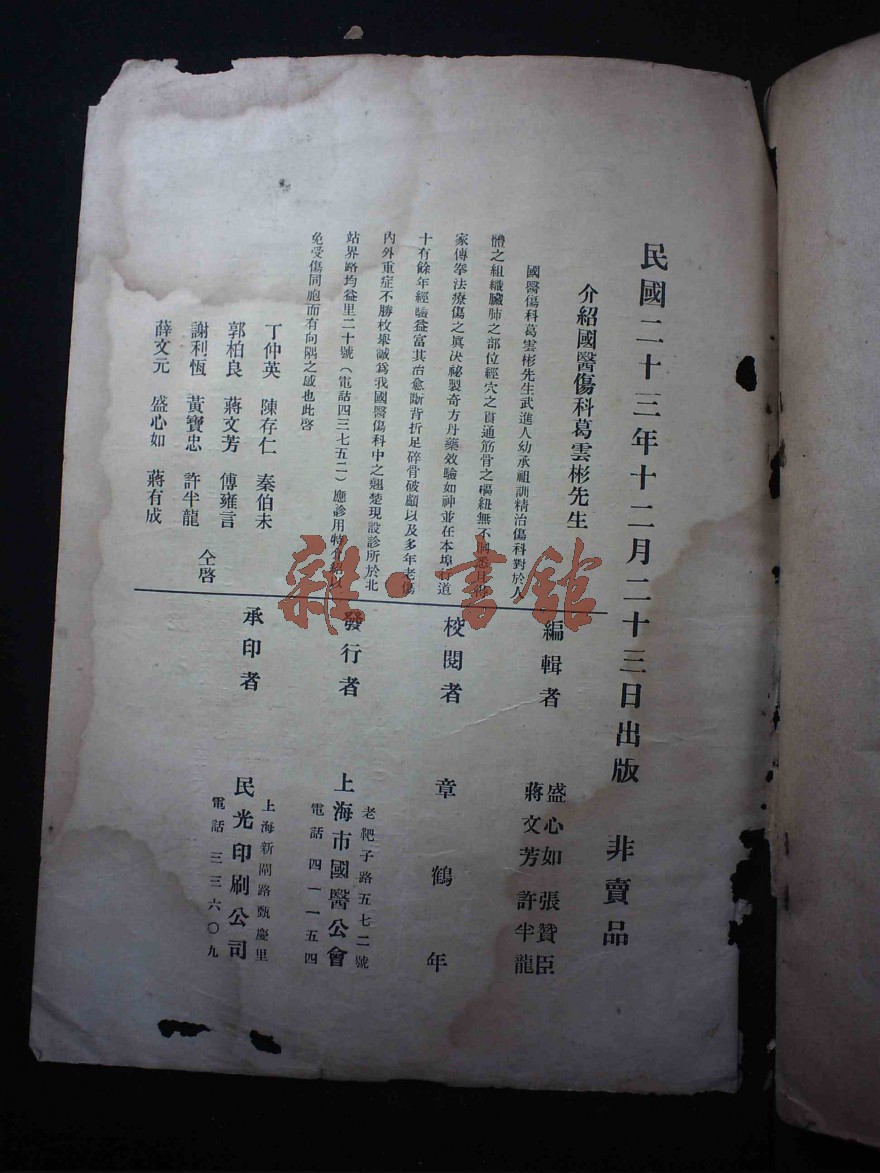 民國二十三年十二月二十三日出版　非賣品
介紹國醫傷科葛雲彬先生
國醫傷科葛雲彬先生武進人幼承祖訓精治傷科對於人
體之組織臟肺之部位經穴之貫通筋骨之樞紐無不洞悉且得
家傳拳法療傷之眞決祕製奇方丹藥效驗如神並在本埠行道
十有餘年經驗益富其治愈斷背折足碎骨破顱以及多年老傷
內外重症不勝枚舉誠爲我國醫傷科中之翹楚現設診所於北
站界路均益里二十號（電話四三七五二）應診用特介紹以
免受傷同胞而有向隅之感也此啓
丁仲英　陳存仁　秦伯未
郭柏良　蔣文芳　傅雍言
謝利恆　黃寶忠　許半龍　仝啓
薛文元　盛心如　蔣有成
編輯者　盛心如　張贊臣
蔣文芳　許半龍
校閱者　章鶴年
發行者　老靶子路五七二號
上海市國醫公會
電話　四一一五四
承印者　上海新閘路甄慶里
民光印刷公司
電話　三三六〇九
雜·書館